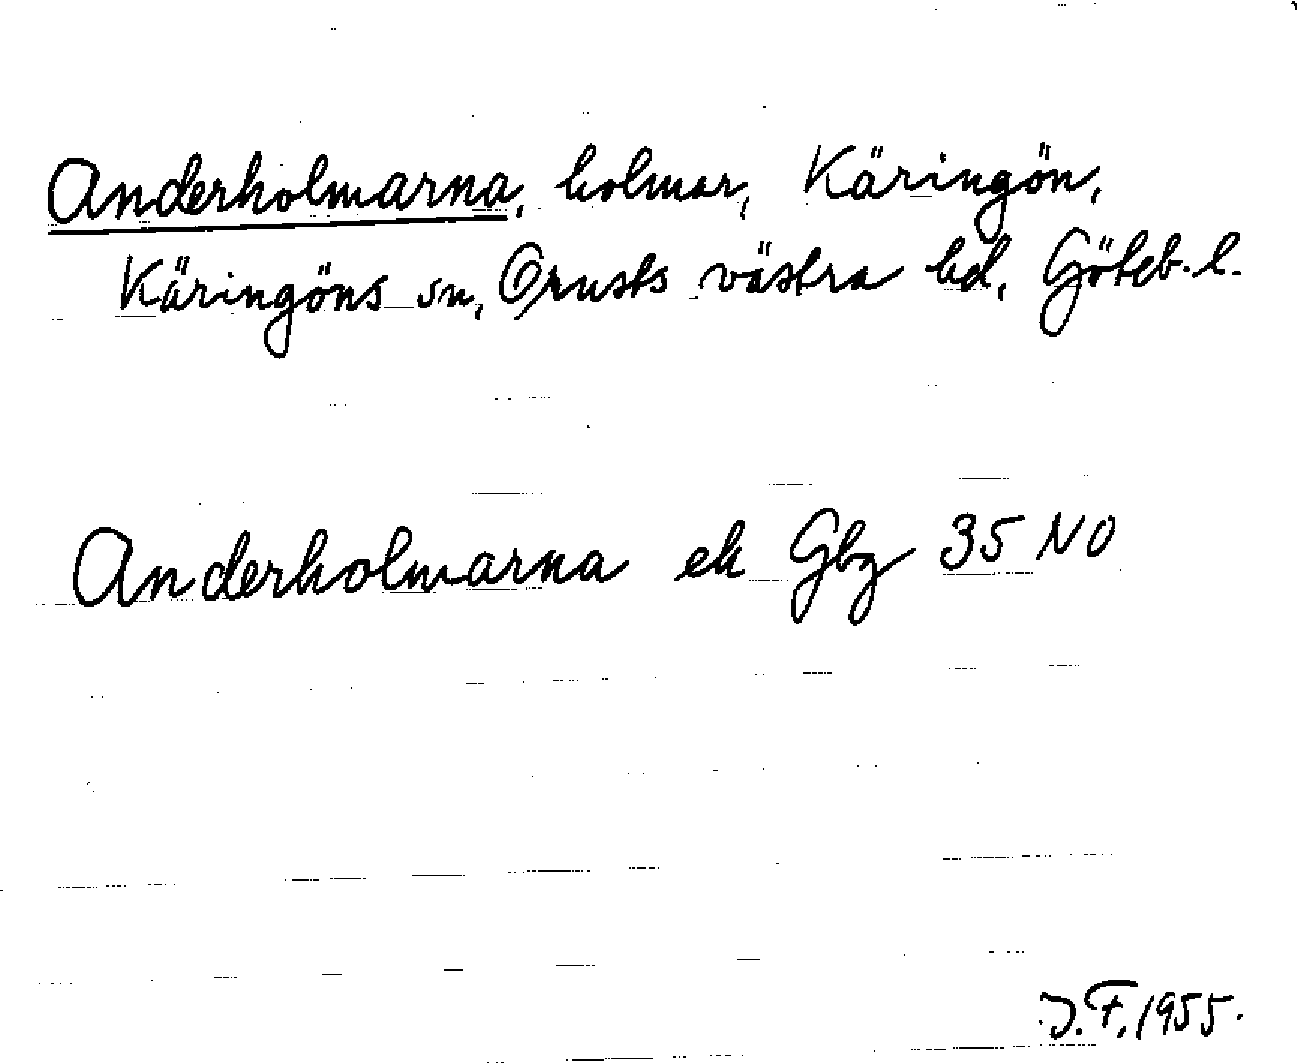 Anderholmarna, holmar, Käringön,
Käringöns sn, Orusts västra hd, Göteb. l.
Anderholmarna ek Gbg 35 NO
J.F. 1955.